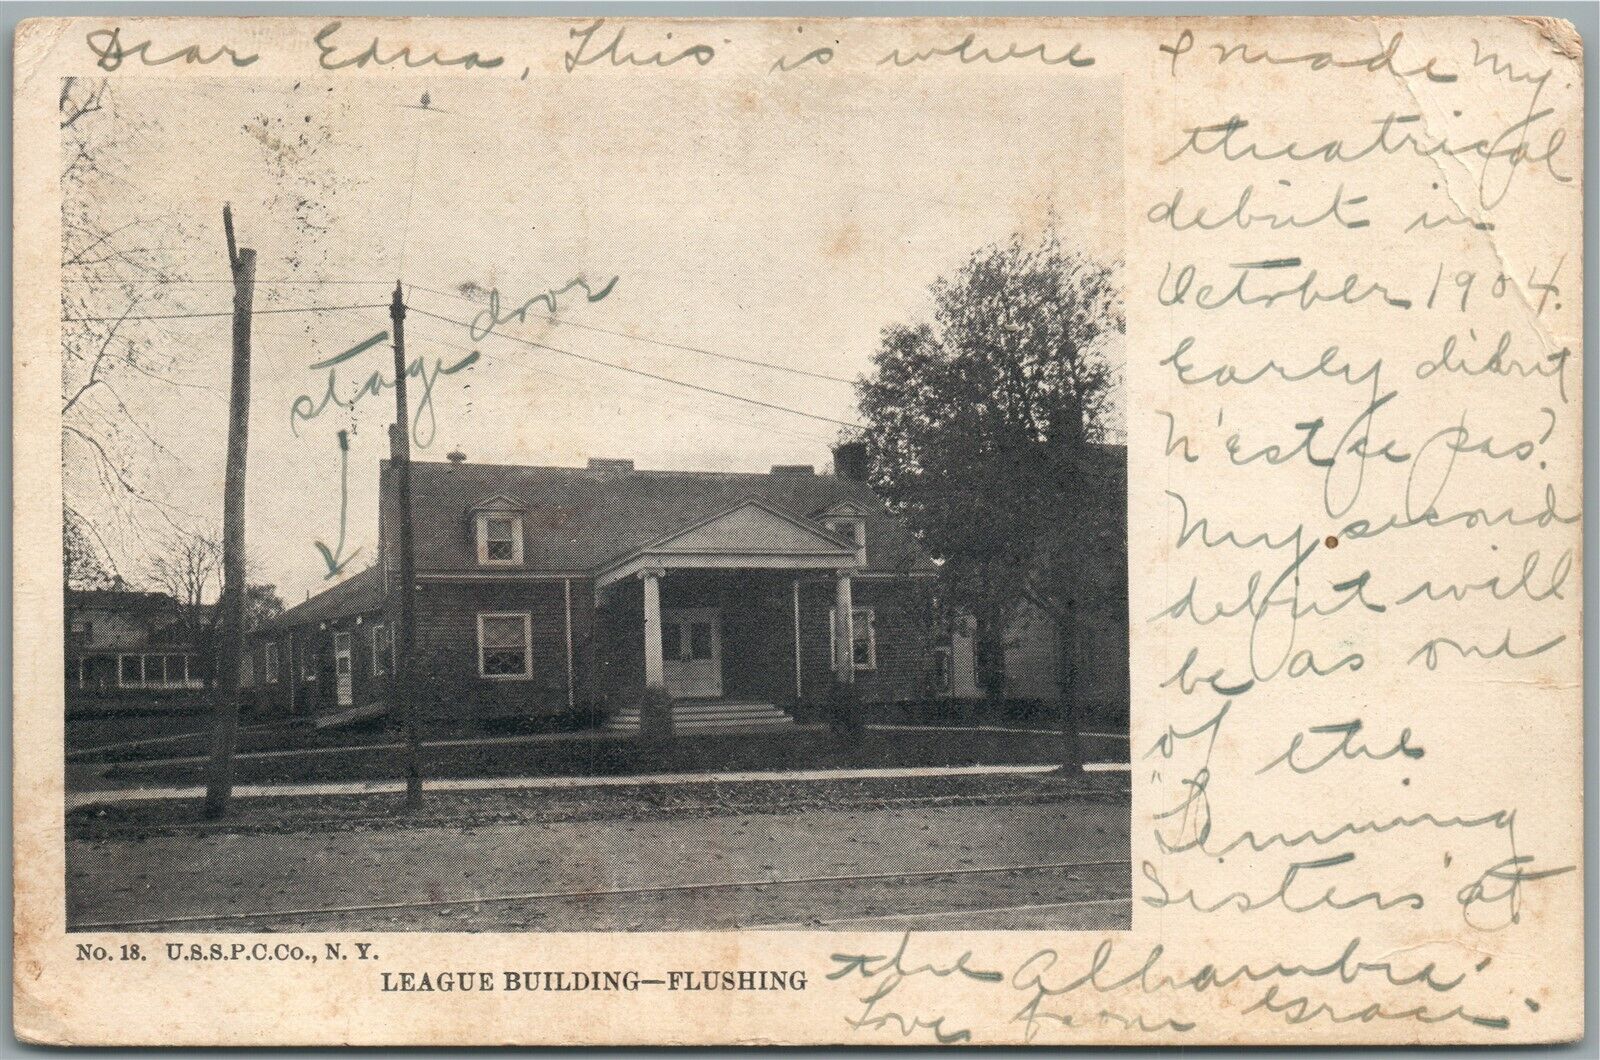 Dear Edna, This is where I made my
theatrical
debut in
October 1904.
Early debut
n'est ce pas?
My second
debut will
be as one
of the
"Lemining
Sisters" at
the Alhambra.
Love from Grace.
stage door
No. 18. U.S.S.P.C.Co., N. Y.
LEAGUE BUILDING—FLUSHING